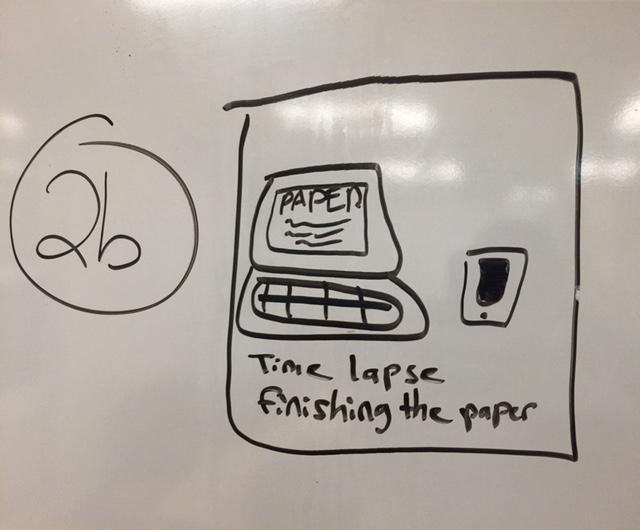 2b
PAPER
Time lapse
finishing the paper